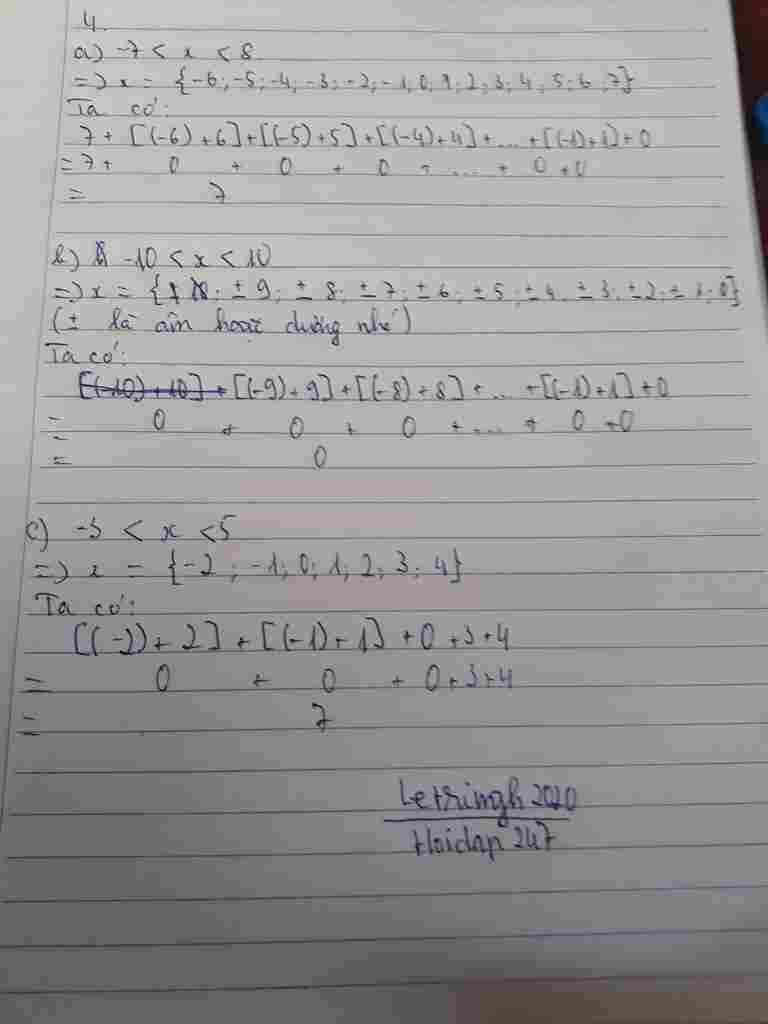 4.
a) -7 < x < 8
=> x = {-6; -5; -4; -3; -2; -1; 0; 1; 2; 3; 4; 5; 6; 7}
Ta có:
7 + [(-6)+6]+[(-5)+5]+[(-4)+4]+...+[(-1)+1]+0
= 7 + 0 + 0 + 0 + ... + 0 + 0
= 7
b) -10 < x < 10
=> x = {± 9; ± 8; ± 7; ± 6; ± 5; ± 4; ± 3; ± 2; ± 1; 0}
(± là âm hoặc dương nhé)
Ta có:
[(-10)+10] + [(-9)+9]+[(-8)+8]+...+[(-1)+1]+0
= 0 + 0 + 0 + ... + 0 + 0
= 0
c) -3 < x < 5
=> x = {-2; -1; 0; 1; 2; 3; 4}
Ta có:
[(-2)+2] + [(-1)+1] + 0 + 3 + 4
= 0 + 0 + 0 + 3 + 4
= 7
Letringh 2010
Hoidap 247